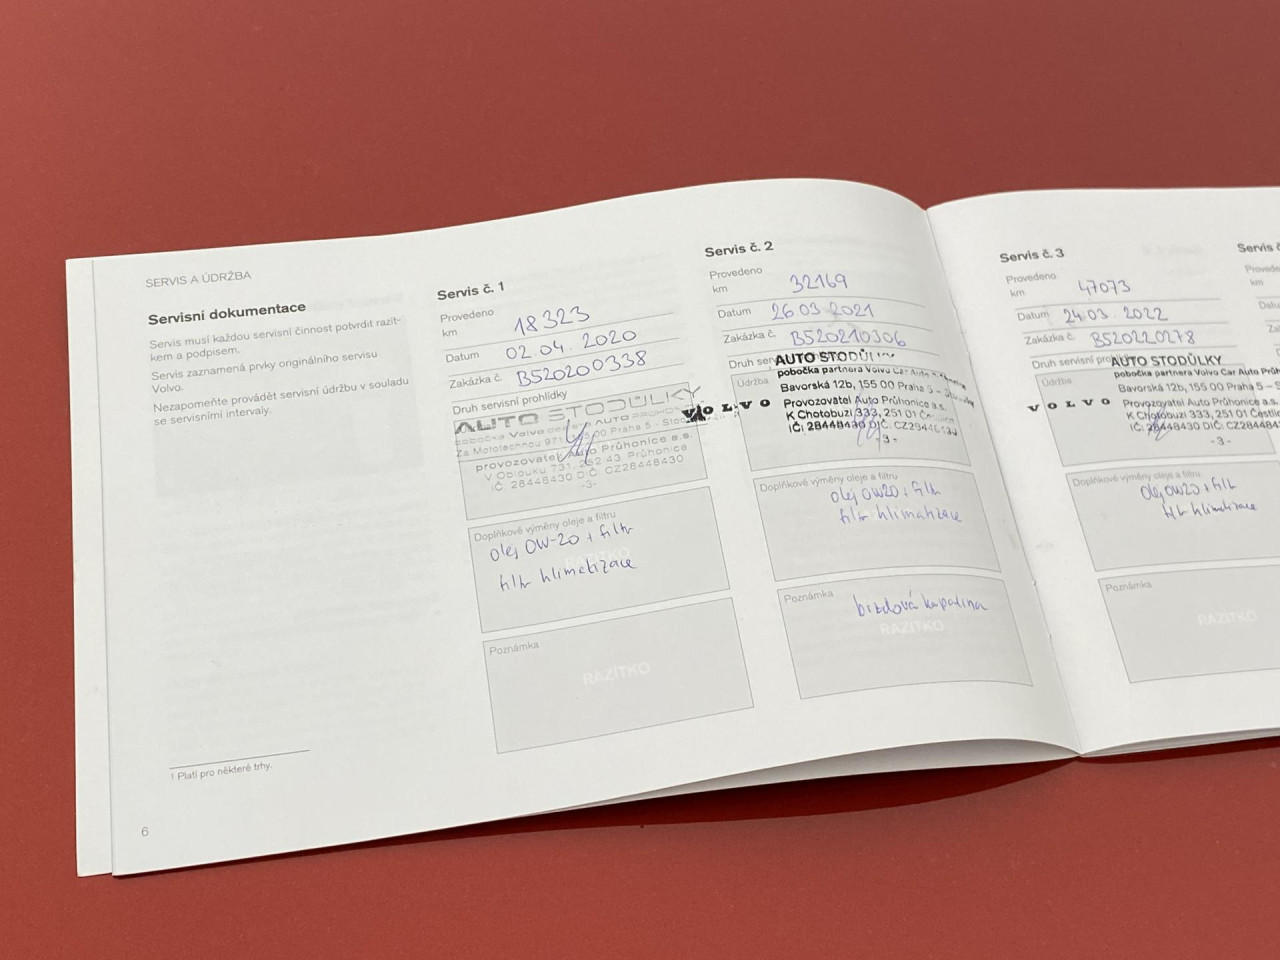 SERVIS A ÚDRŽBA
Servisní dokumentace
Servis musí každou servisní činnost potvrdit razít-
kem a podpisem.
Servis zaznamená prvky originálního servisu
Volvo.
Nezapomeňte provádět servisní údržbu v souladu
se servisními intervaly.
1 Platí pro některé trhy.
6
Servis č. 1
Provedeno
km 18323
Datum 02.04.2020
Zakázka č. B520200338
Druh servisní prohlídky
AUTO STODŮLKY
pobočka Volvo AUTO
Za Mototechnou 971, 155 00 Praha 5 -
provozovatel Auto Průhonice a.s.
V Oblouku 731, 252 43 Průhonice
IČ: 28448430 DIČ: CZ28448430
-3-
Doplňkové výměny oleje a filtru
olej 0W-20 + filtr
filtr klimatizace
Poznámka
RAZÍTKO
Servis č. 2
Provedeno
km 32169
Datum 26.03.2021
Zakázka č. B520210306
Druh
Údržba
AUTO STODŮLKY
pobočka partnera Volvo Car Auto
VOLVO
Bavorská 12b, 155 00 Praha 5 -
Provozovatel Auto Průhonice a.s.
K Chotobuzi 333, 251 01
IČ: 28448430 DIČ:
-3-
Doplňkové výměny oleje a filtru
olej 0W20 + filtr
filtr klimatizace
Poznámka
brzdová kapalina
RAZÍTKO
Servis č. 3
Provedeno
km 47073
Datum 24.03.2022
Zakázka č. B520220278
Druh servisní
Údržba
AUTO STODŮLKY
pobočka partnera Volvo Car Auto
VOLVO
Bavorská 12b, 155 00 Praha 5 -
Provozovatel Auto Průhonice a.s.
K Chotobuzi 333, 251 01
IČ: 28448430 DIČ:
-3-
Doplňkové výměny oleje a filtru
olej 0W20 + filtr
filtr klimatizace
Poznámka
RAZÍTKO